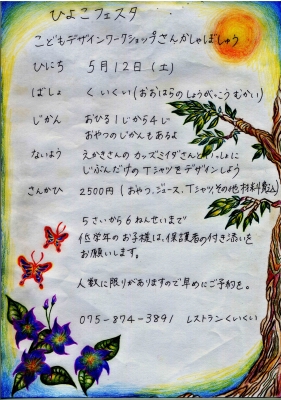 ひよこフェスタ
こどもデザインワークショップさんかしゃぼしゅう
ひにち 5月12日(土)
ばしょ くいくい(おおはらのしょうがっこうむかい)
じかん おひる1じから4じ
おやつのじかんもあるよ
ないよう えかきさんのカッズミイダさんといっしょに
じぶんだけのTシャツをデザインしよう
さんかひ 2500円(おやつ、ジュース、Tシャツ、その他材料費込)
5さいから6ねんせいまで
低学年のお子様は、保護者の付き添いを
お願いします。
人数に限りがありますので早めにご予約を。
075-874-3891 レストランくいくい